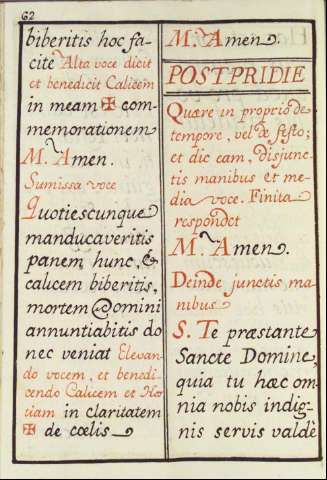 62
biberitis hoc fa-
cite Alta voce dicit
et benedicit Calicem
in meam ✠ com-
memorationem
M. Amen.
Sumissa voce
Quotiescunque
manducaveritis
panem hunc, &
calicem biberitis,
mortem Domini
annuntiabitis do
nec veniat Elevan-
do vocem, et benedi-
cendo Calicem et Hos
tiam in claritatem
✠ de cœlis
M. Amen.
POSTPRIDIE
Quere in proprio de
tempore, vel de festo;
et dic eam, disjunc-
tis manibus et me-
dia voce. Finita
respondet
M. Amen.
Deinde junctis ma
nibus
S. Te præstante
Sancte Domine,
quia tu hæc om-
nia nobis indig-
nis servis valdè